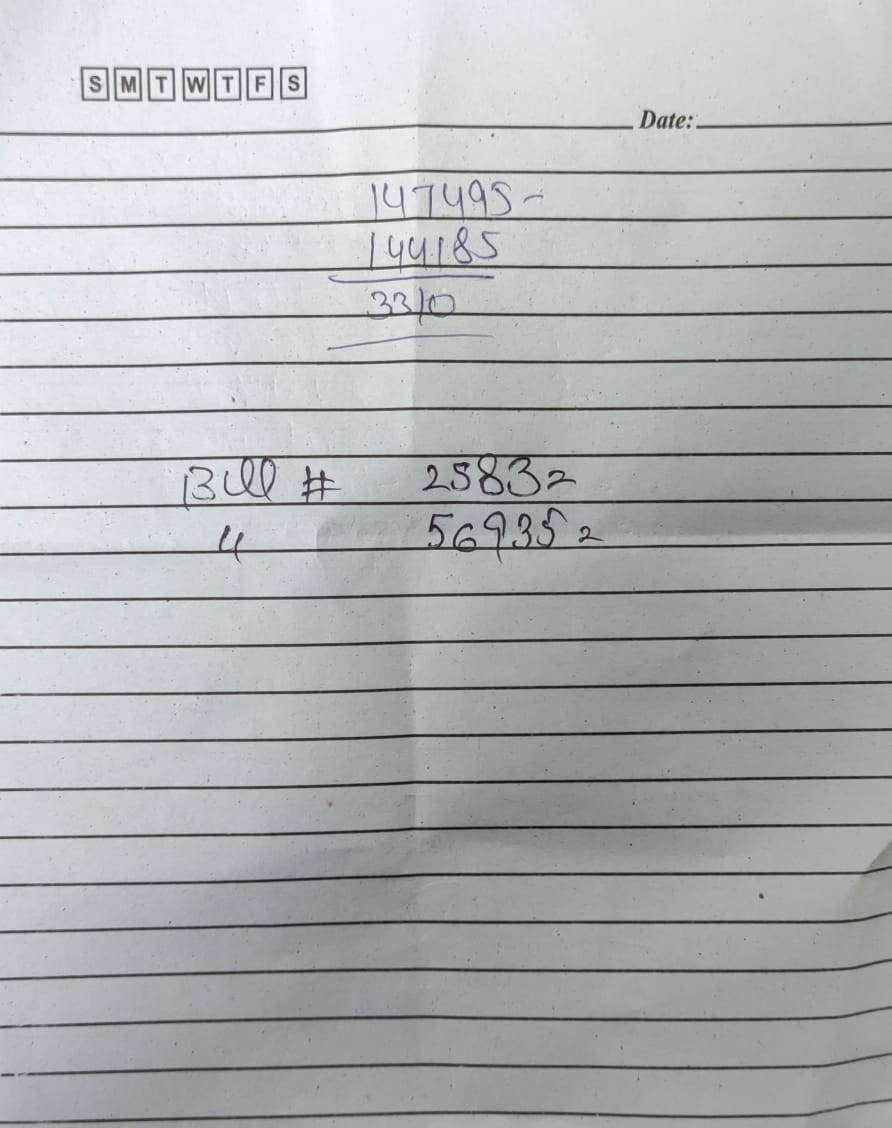 S M T W T F S
Date:
147495-
144185
3310
Bill # 25832
" 569352